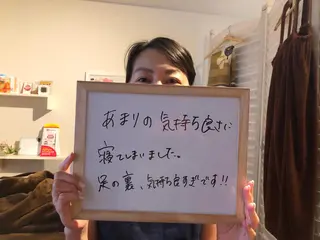 あまりの気持ち良さに
寝てしまいました。
足の裏、気持ち良すぎです!!